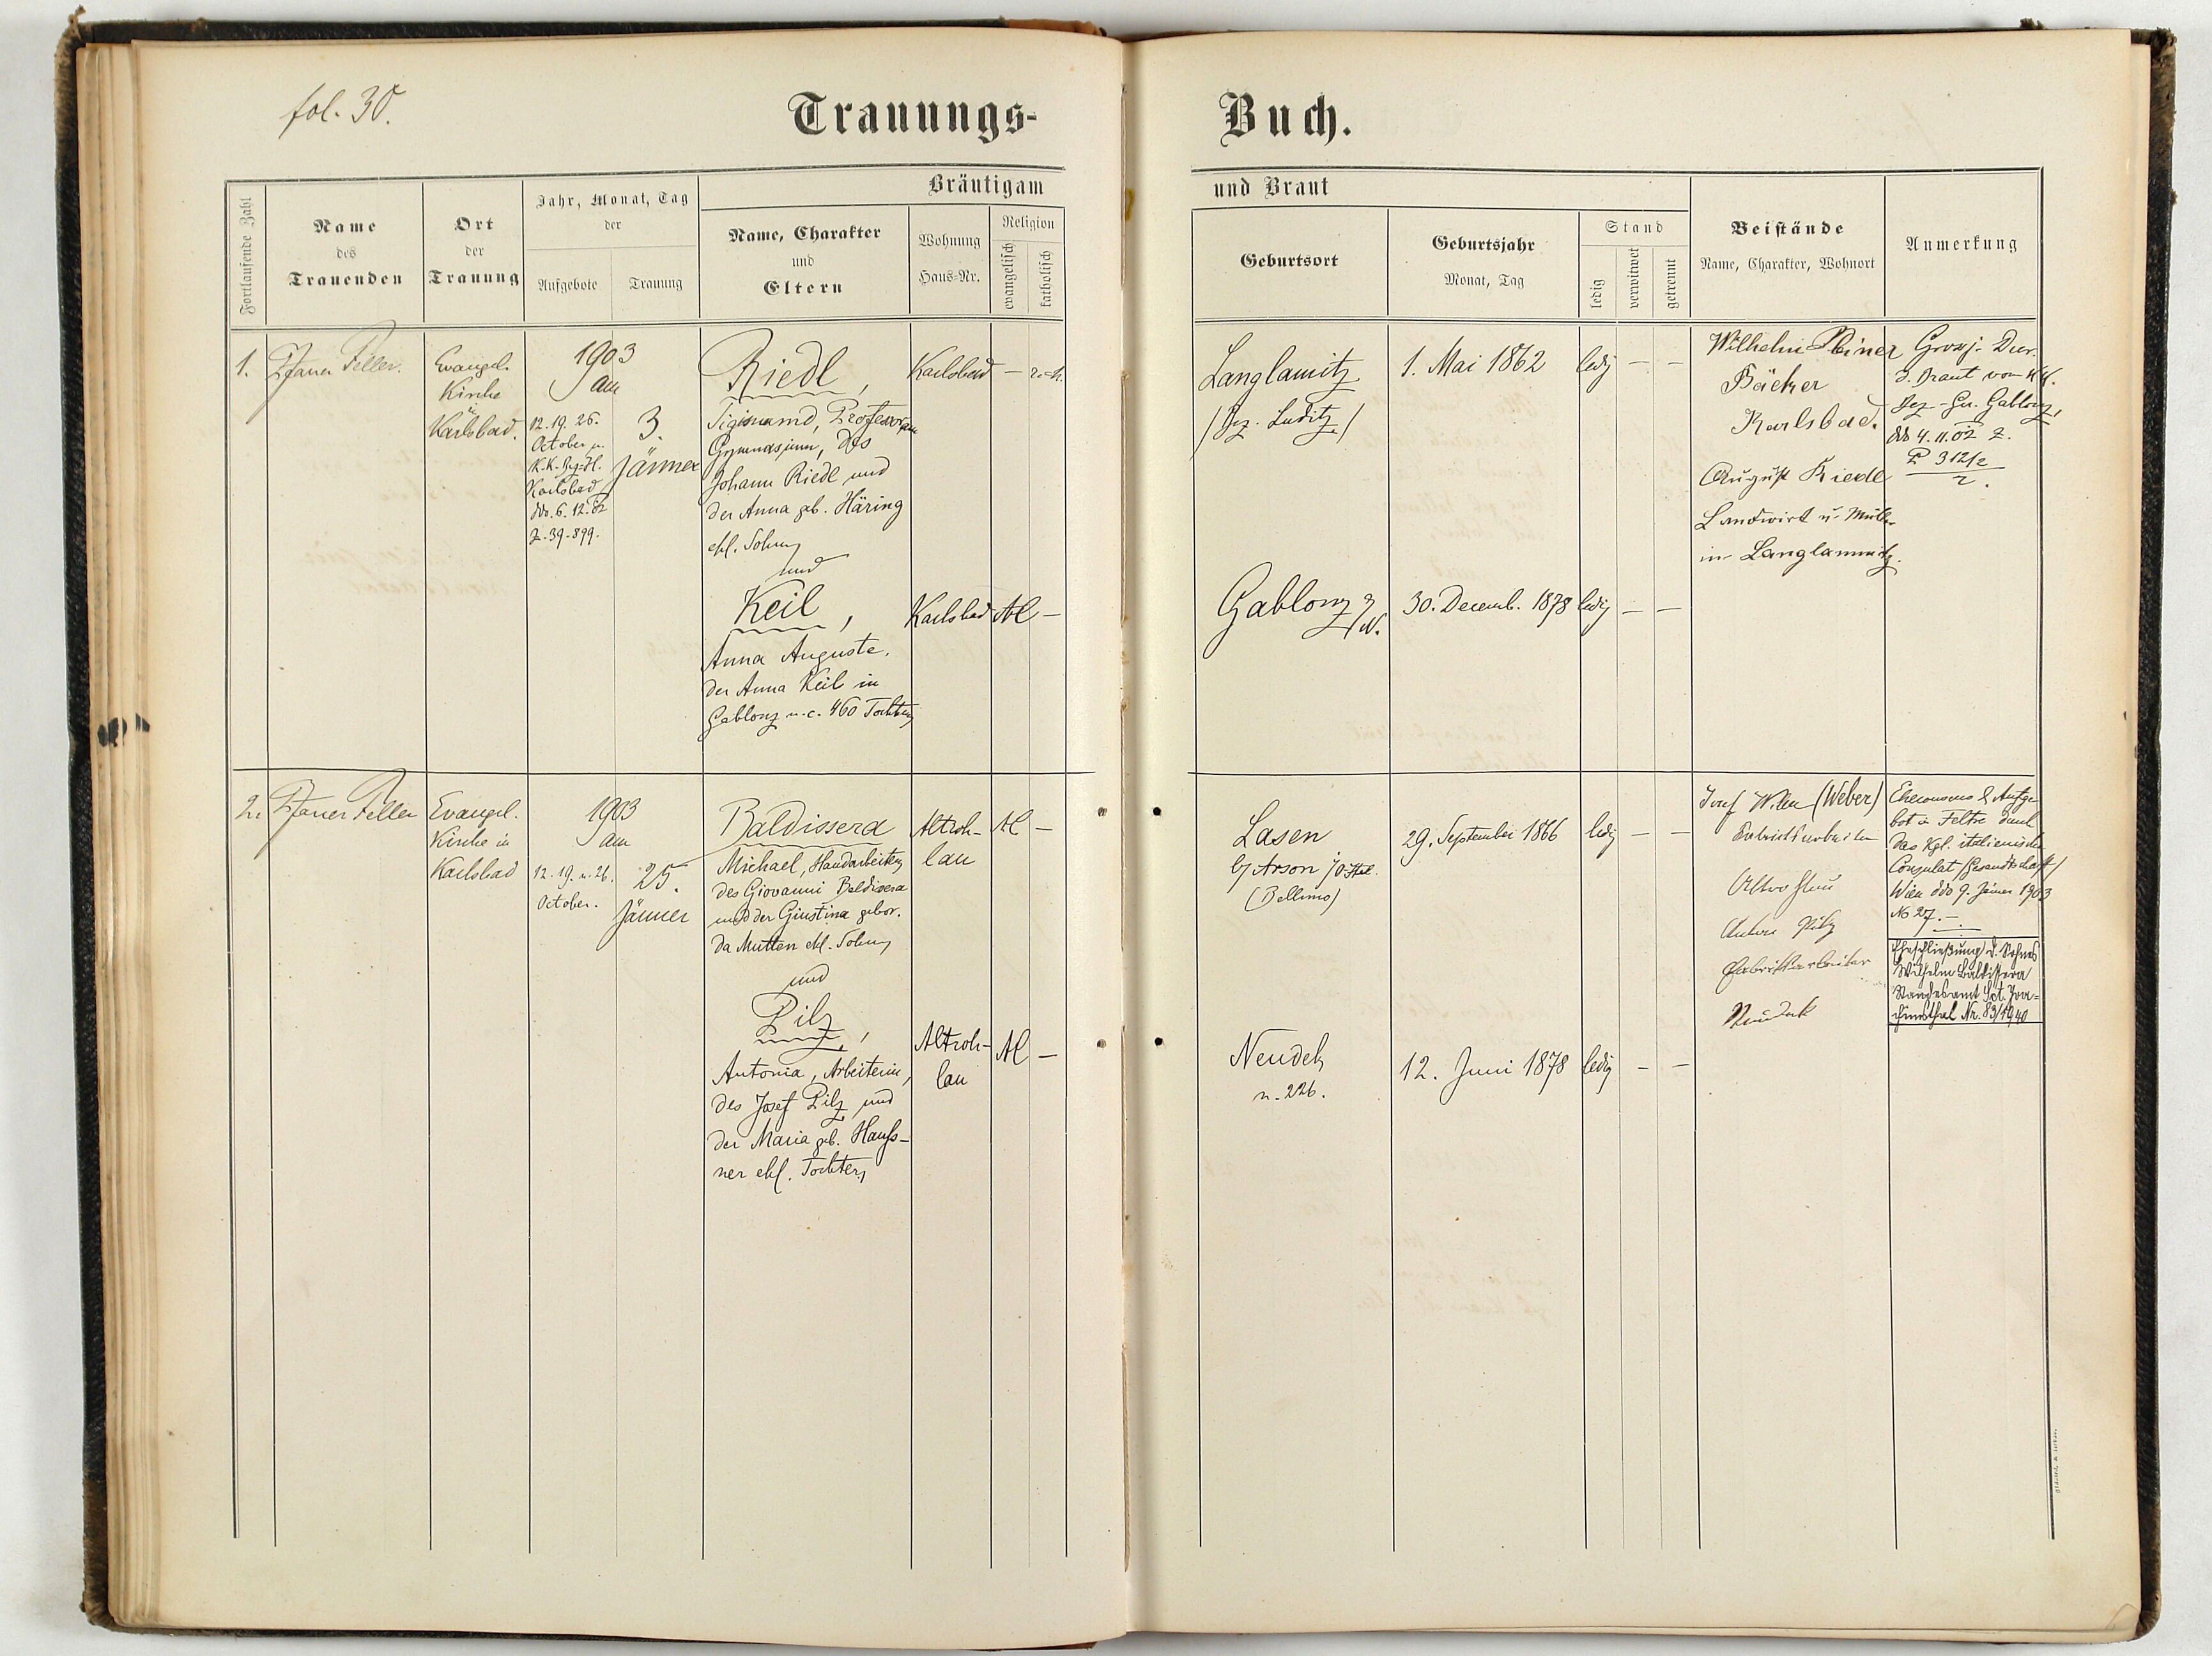 fol. 30.
Trauungs-
Buch.
Fortlaufende Zahl
Name
des
Trauenden
Ort
der
Trauung
Jahr, Monat, Tag
der
Aufgebote
Trauung
Bräutigam
Name, Charakter
und
Eltern
Wohnung
Haus-Nr.
Religion
evangelisch
katholisch
und Braut
Geburtsort
Geburtsjahr
Monat, Tag
Stand
ledig
verwitwet
getrennt
Beistände
Name, Charakter, Wohnort
Anmerkung
1.
Pfarrer Feller.
Evangel.
Kirche
Karlsbad.
1903
am
12. 19. 26.
October u.
Karlsbad
ddo. 6. 12. 02
Z. 39.899.
3.
Jänner
Riedl,
Sigismund, Professor am
Gymnasium, des
Johann Riedl und
der Anna geb. Häring
ehl. Sohn
und
Keil,
Anna Auguste,
der Anna Keil in
Gablonz n. c. 460 Tochter
Karlsbad
—
r. k.
Karlsbad
AC
—
Langlamitz
/Bez. Luditz/
1. Mai 1862
ledig
—
—
Gablonz a/N.
30. Decemb. 1878
ledig
—
—
Wilhelm
Bäcker
Karlsbad.
August Riedl
Landwirt u. Müller
in Langlammitz.
Grossj.
d. Braut vom k.k.
Bez.-Ger. Gablonz,
ddo 4. 11. 02 Z.
P 312/2
2.
2.
Pfarrer Feller
Evangel.
Kirche in
Karlsbad
1903
am
12. 19. u. 26.
October.
25.
Jänner
Baldissera
Michael, Handarbeiter,
des Giovanni Baldissera
und der Giustina gebor.
Da Mutten ehl. Sohn
und
Pilz,
Antonia, Arbeiterin,
des Josef Pilz und
der Maria geb. Hauss-
ner ehl. Tochter
Altroh-
lau
AC
—
Altroh-
lau
AC
—
Lasen
b/ Arson
(Belluno)
29. September 1866
ledig
—
—
Neudek
n. 226.
12. Juni 1878
ledig
—
—
Josef (Weber)
Fabriksarbeiter
Altrohlau
Anton Pilz
Fabriksarbeiter
Neudek
Eheconsens & Aufge-
bot in Feltre durch
das Kgl. italienische
Consulat /Gesandtschaft/
Wien ddo 9. Jänner 1903
No 27.—
Eheschließung d. Sohnes
Wilhelm Baldissera
Standesamt Sct. Joa-
chimsthal Nr. 83/1940